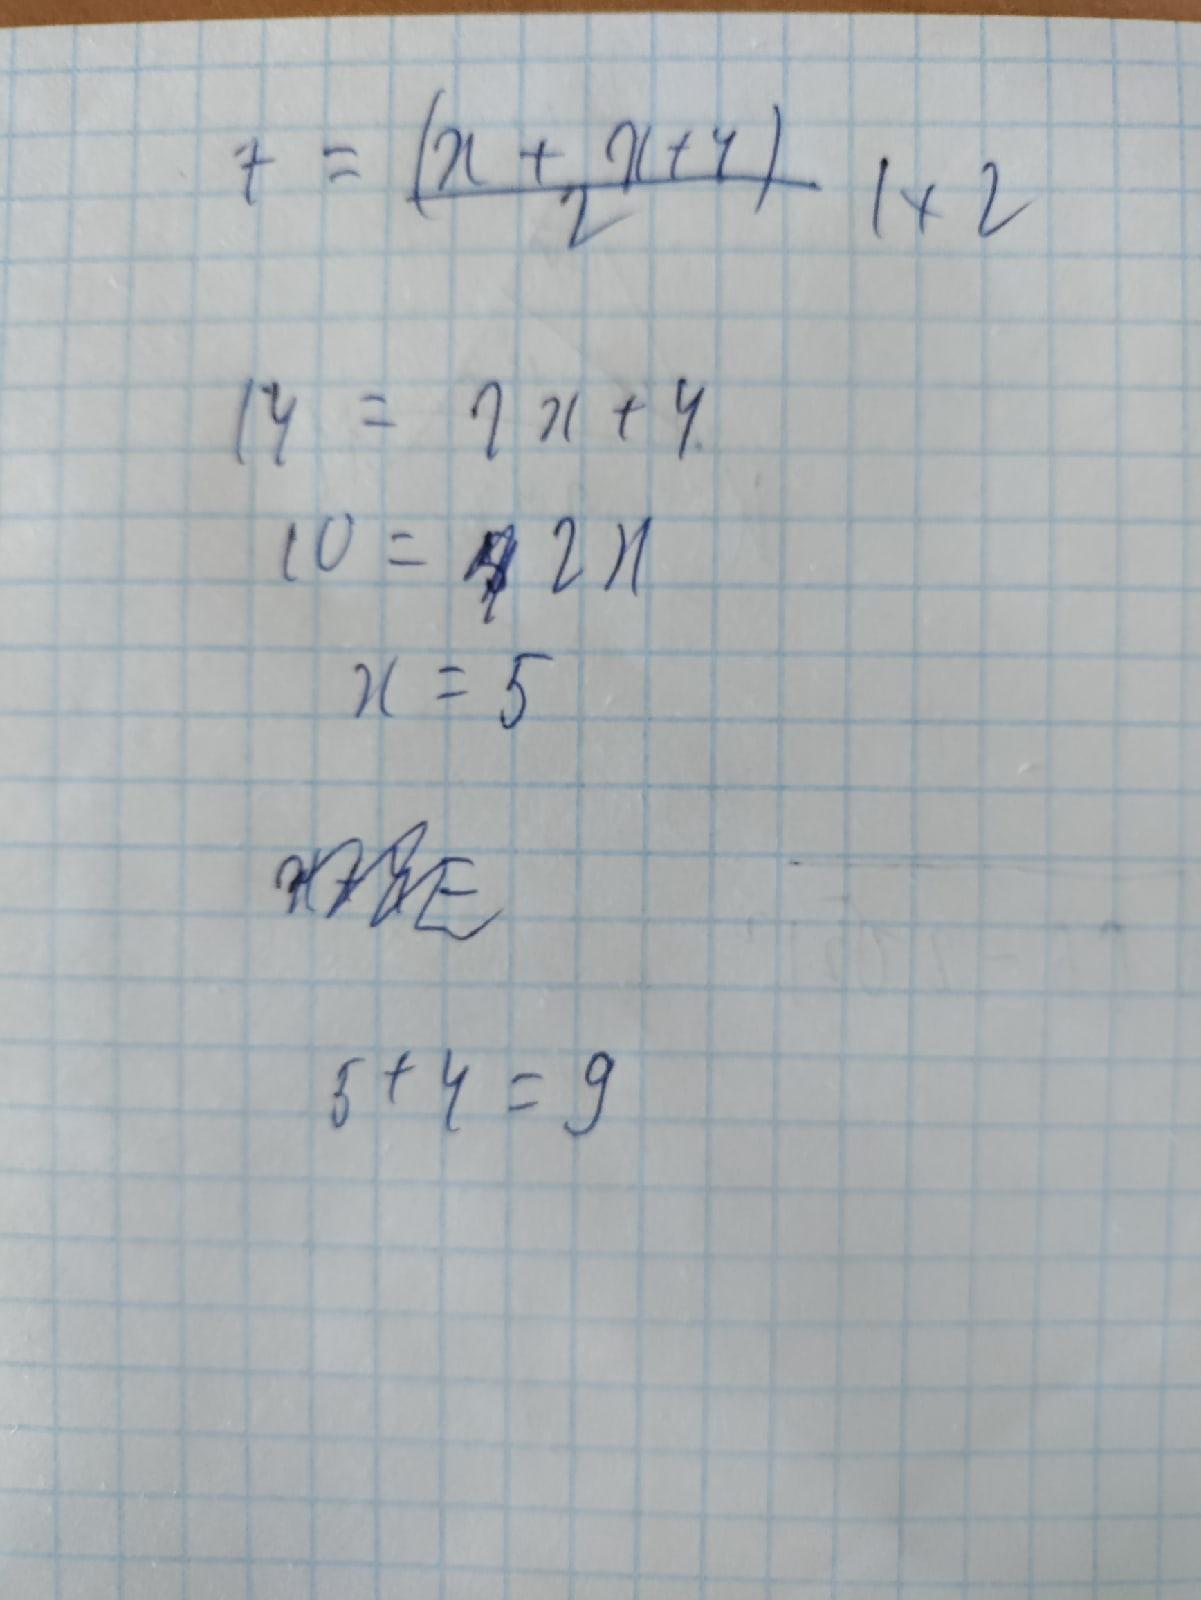 7 = (x + x+4)/2 | × 2
14 = 2x+4
10 = 2x
x = 5
5+4 = 9